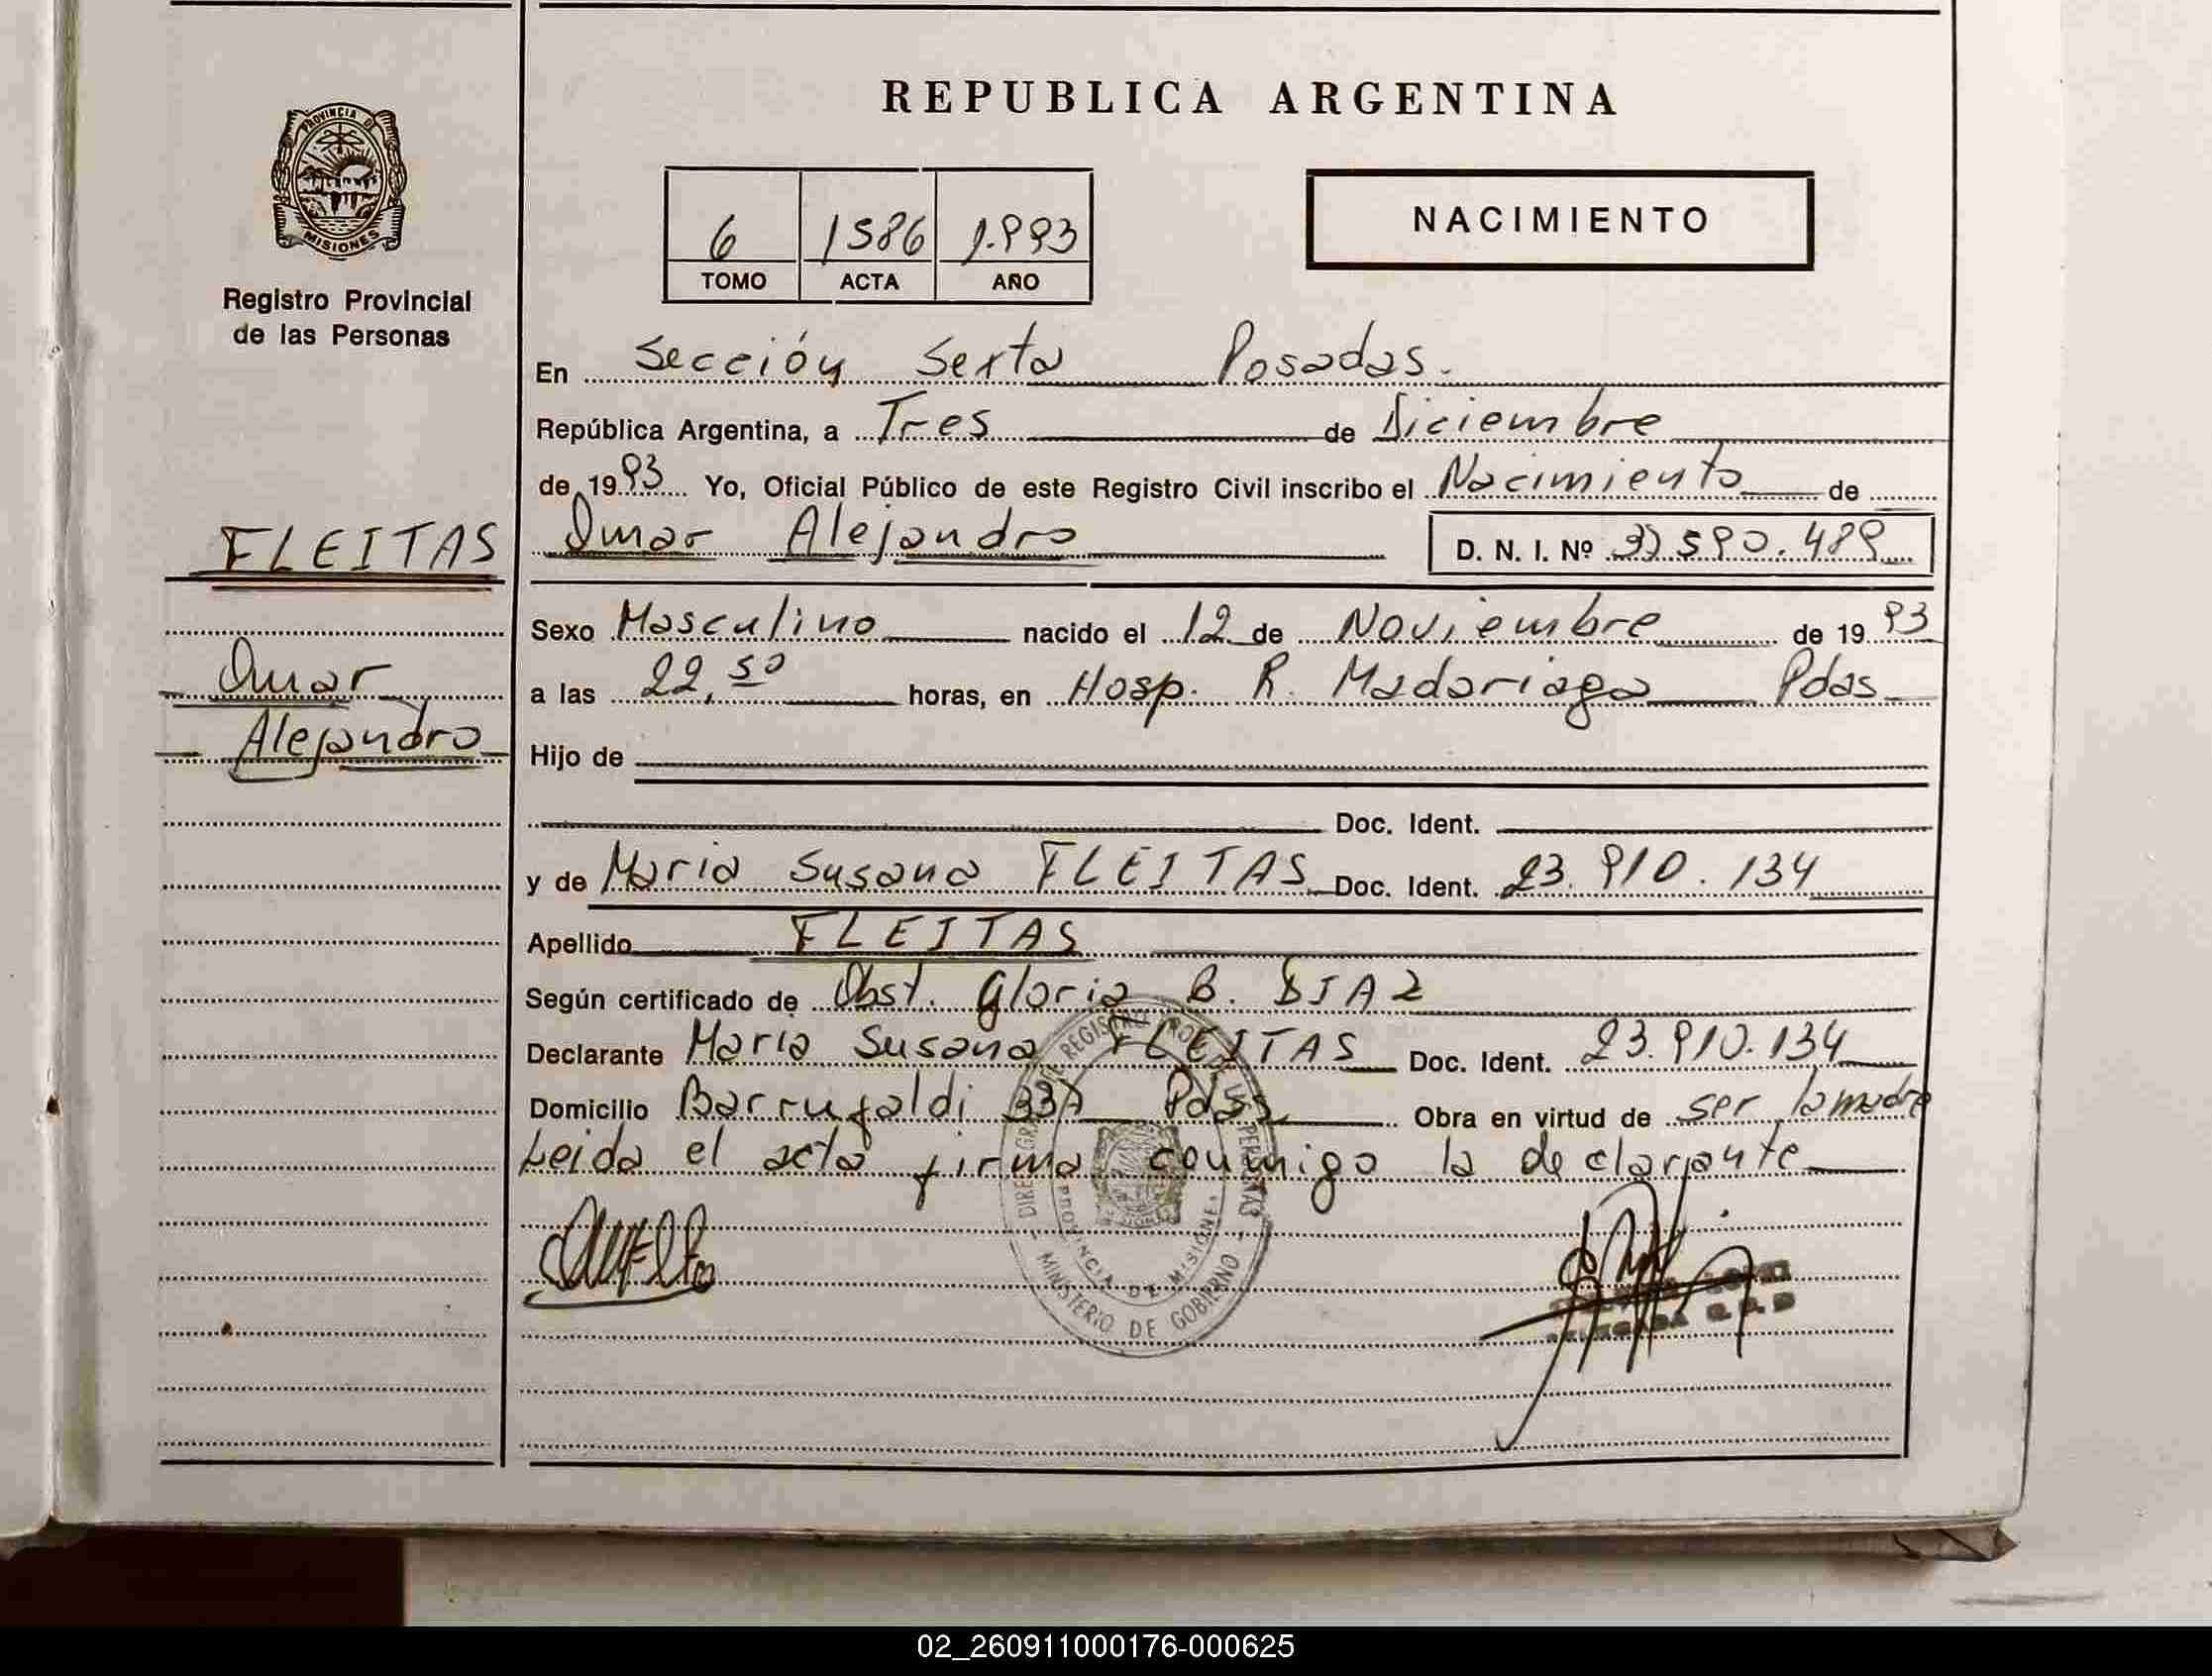 REPUBLICA ARGENTINA
PROVINCIA DE
MISIONES
Registro Provincial
de las Personas
6 1586 1.993
TOMO ACTA AÑO
NACIMIENTO
En Sección Sexta Posadas.
República Argentina, a Tres de Diciembre
de 1993 Yo, Oficial Público de este Registro Civil inscribo el Nacimiento de
FLEITAS
Omar Alejandro D. N. I. Nº
Sexo Masculino nacido el 12 de Noviembre de 1993
Omar
a las 22,50 horas, en Hosp. R. Madariaga Pdas
Alejandro
Hijo de
Doc. Ident.
y de Maria Susana FLEITAS Doc. Ident. 23.910.134
Apellido FLEITAS
Según certificado de Obst. Gloria B. DIAZ
Declarante Maria Susana FLEITAS Doc. Ident. 23.910.134
Domicilio Pdas Obra en virtud de ser la madre
Leida el acta firma conmigo la declarante
MINISTERIO DE GOBIERNO
PROVINCIA DE MISIONES
02_260911000176-000625